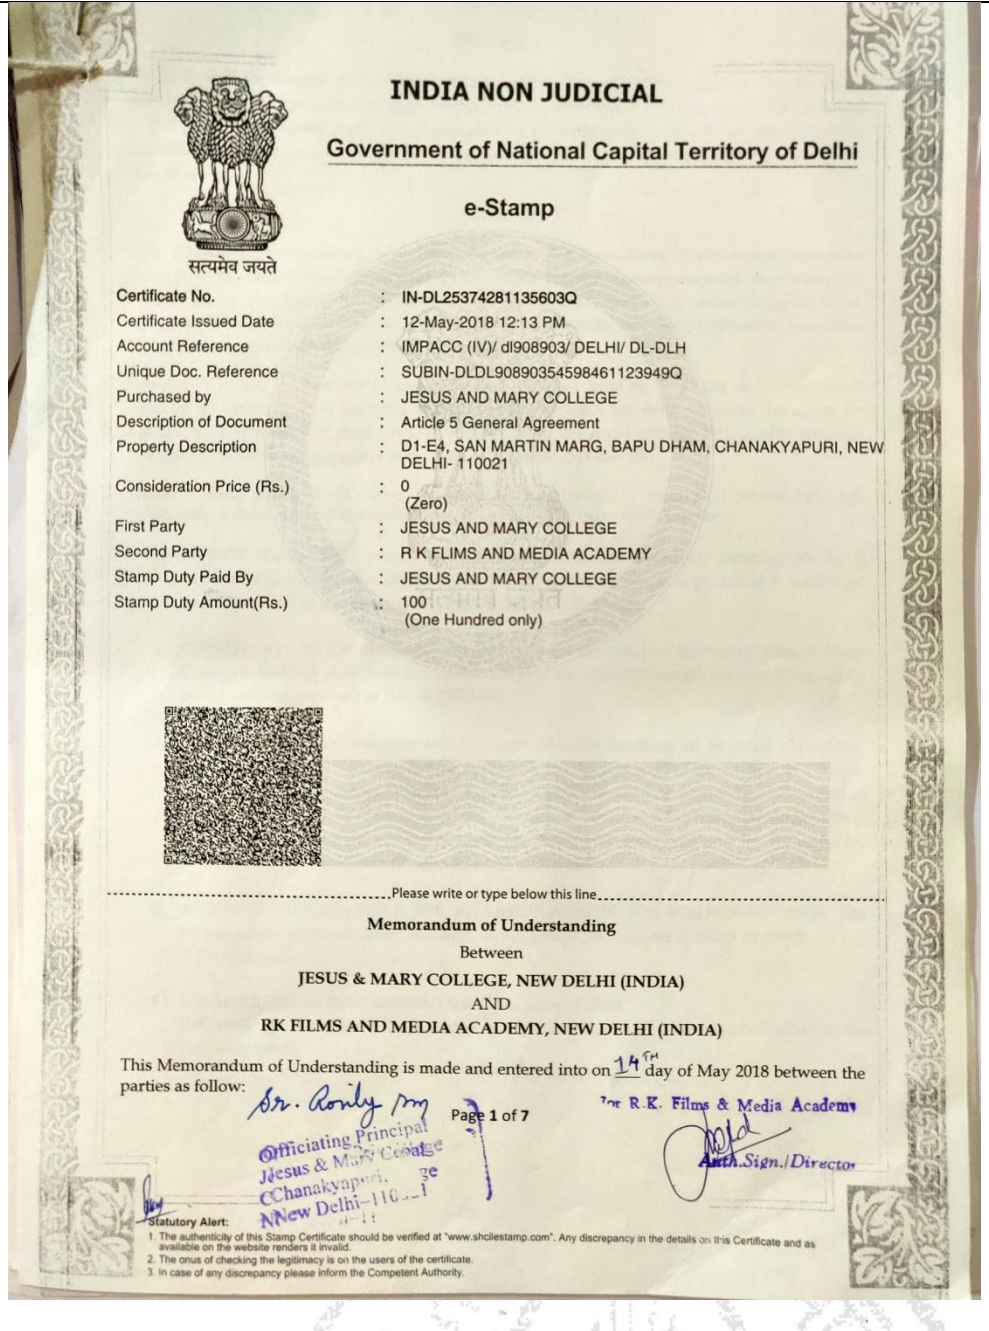 INDIA NON JUDICIAL
Government of National Capital Territory of Delhi
e-Stamp
सत्यमेव जयते
Certificate No. : IN-DL25374281135603Q
Certificate Issued Date : 12-May-2018 12:13 PM
Account Reference : IMPACC (IV)/ dl908903/ DELHI/ DL-DLH
Unique Doc. Reference : SUBIN-DLDL90890354598461123949Q
Purchased by : JESUS AND MARY COLLEGE
Description of Document : Article 5 General Agreement
Property Description : D1-E4, SAN MARTIN MARG, BAPU DHAM, CHANAKYAPURI, NEW
DELHI- 110021
Consideration Price (Rs.) : 0
(Zero)
First Party : JESUS AND MARY COLLEGE
Second Party : R K FLIMS AND MEDIA ACADEMY
Stamp Duty Paid By : JESUS AND MARY COLLEGE
Stamp Duty Amount(Rs.) : 100
(One Hundred only)
Please write or type below this line
Memorandum of Understanding
Between
JESUS & MARY COLLEGE, NEW DELHI (INDIA)
AND
RK FILMS AND MEDIA ACADEMY, NEW DELHI (INDIA)
This Memorandum of Understanding is made and entered into on 14TH day of May 2018 between the
parties as follow:
Sr.
Page 1 of 7
For R.K. Films & Media Academy
Auth.Sign./Director
Officiating Principal
Jesus & Mary College
Chanakyapuri,
New Delhi-
Statutory Alert:
1. The authenticity of this Stamp Certificate should be verified at "www.shcilestamp.com". Any discrepancy in the details on this Certificate and as
available on the website renders it invalid.
2. The onus of checking the legitimacy is on the users of the certificate.
3. In case of any discrepancy please inform the Competent Authority.